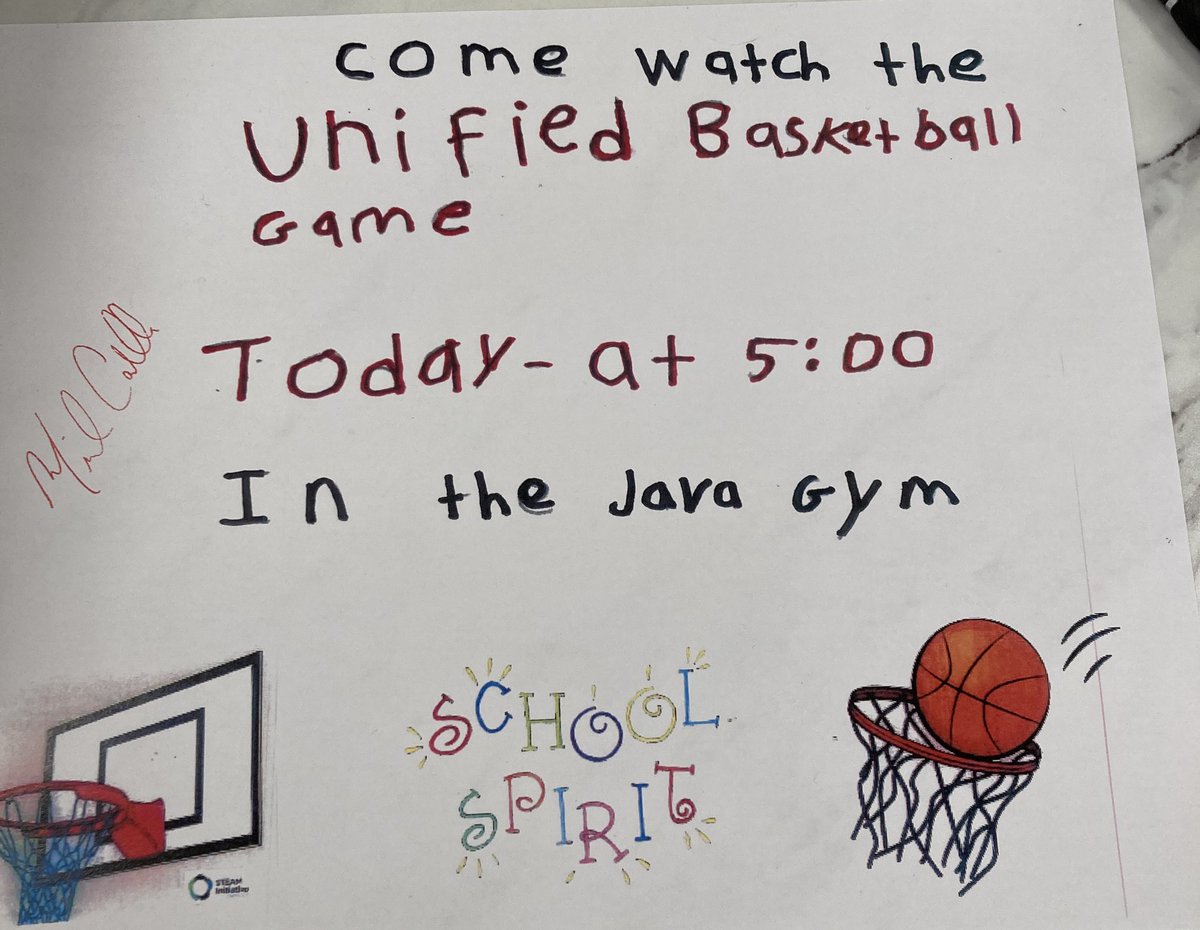 come watch the
Unified Basketball
Game
Today- at 5:00
In the Java Gym
SCHOOL
SPIRIT
STEAM
Initiative